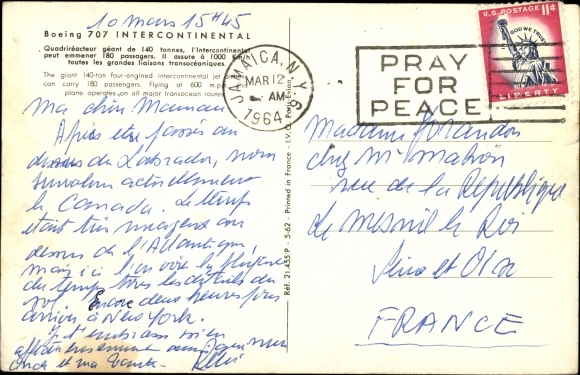 10 mars 15H45
Boeing 707 INTERCONTINENTAL
Quadriréacteur géant de 140 tonnes, l'Intercontinental
peut emmener 180 passagers. Il assure à 1000 Km/
toutes les grandes liaisons transocéaniques.
The giant 140-ton four-engined intercontinental jet
can carry 180 passengers. Flying at 600 m.p.
plane operates on all major transocean routes.
Ma chère Maman
Après être passés au
dessus du Labrador, nous
survolons actuellement
le Canada. Le temps
était très nuageux au
dessus de l'Atlantique,
mais ici l'on voit la plupart
du temps tous les détails du
sol. Encore deux heures pour
arriver à New York.
Je t'embrasse bien
affectueusement ainsi que mon
oncle et ma tante.
Réf. 21.455 P - 5-62 - Printed in France - I.V.O. Paris-Evian
JAMAICA, N.Y.
MAR 12
AM
1964
PRAY
FOR
PEACE
U.S. POSTAGE 11¢
IN GOD WE TRUST
LIBERTY
Madame
chez Mr
rue de la République
Le Mesnil le Roi
Seine et Oise
FRANCE